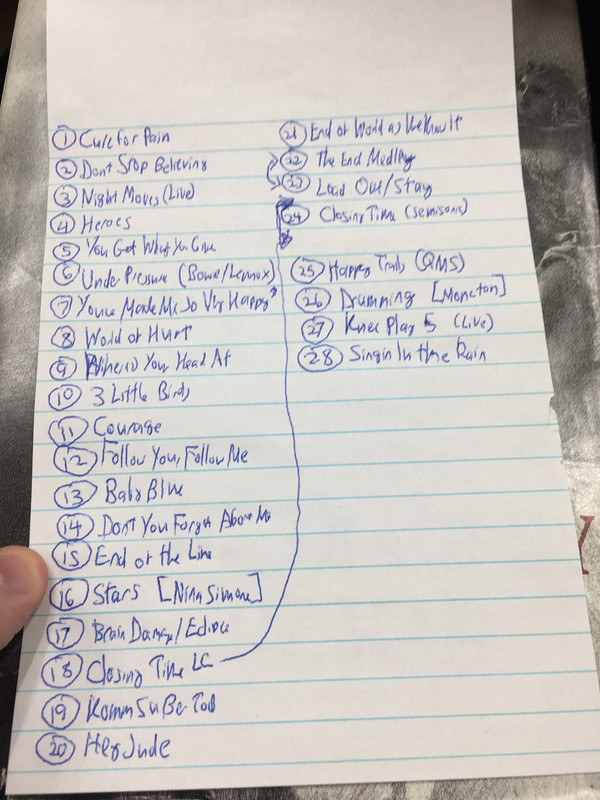 1 Cure for Pain
2 Dont Stop Believing
3 Night Moves (Live)
4 Heroes
5 You Get What You Give
6 Under Pressure (Bowie/Lennox)
7 Youve Made Me So Very Happy
8 World of Hurt
9 Wheres Your Head At
10 3 Little Birds
11 Courage
12 Follow You, Follow Me
13 Baby Blue
14 Dont You Forget About Me
15 End of the Line
16 Stars [Nina Simone]
17 Brain Damage/Eclipse
18 Closing Time LC
19 Komm Su Ber Tod
20 Hey Jude
21 End of World as We Know It
22 The End Medley
23 Load Out/Stay
24 Closing Time (Semisonic)
25 Happy Trails (QMS)
26 Drumming [Moncton]
27 Knee Play 5 (Live)
28 Singin In the Rain